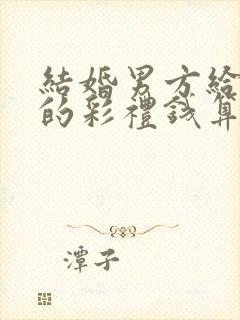 結婚男方給
的彩禮錢算
潭子